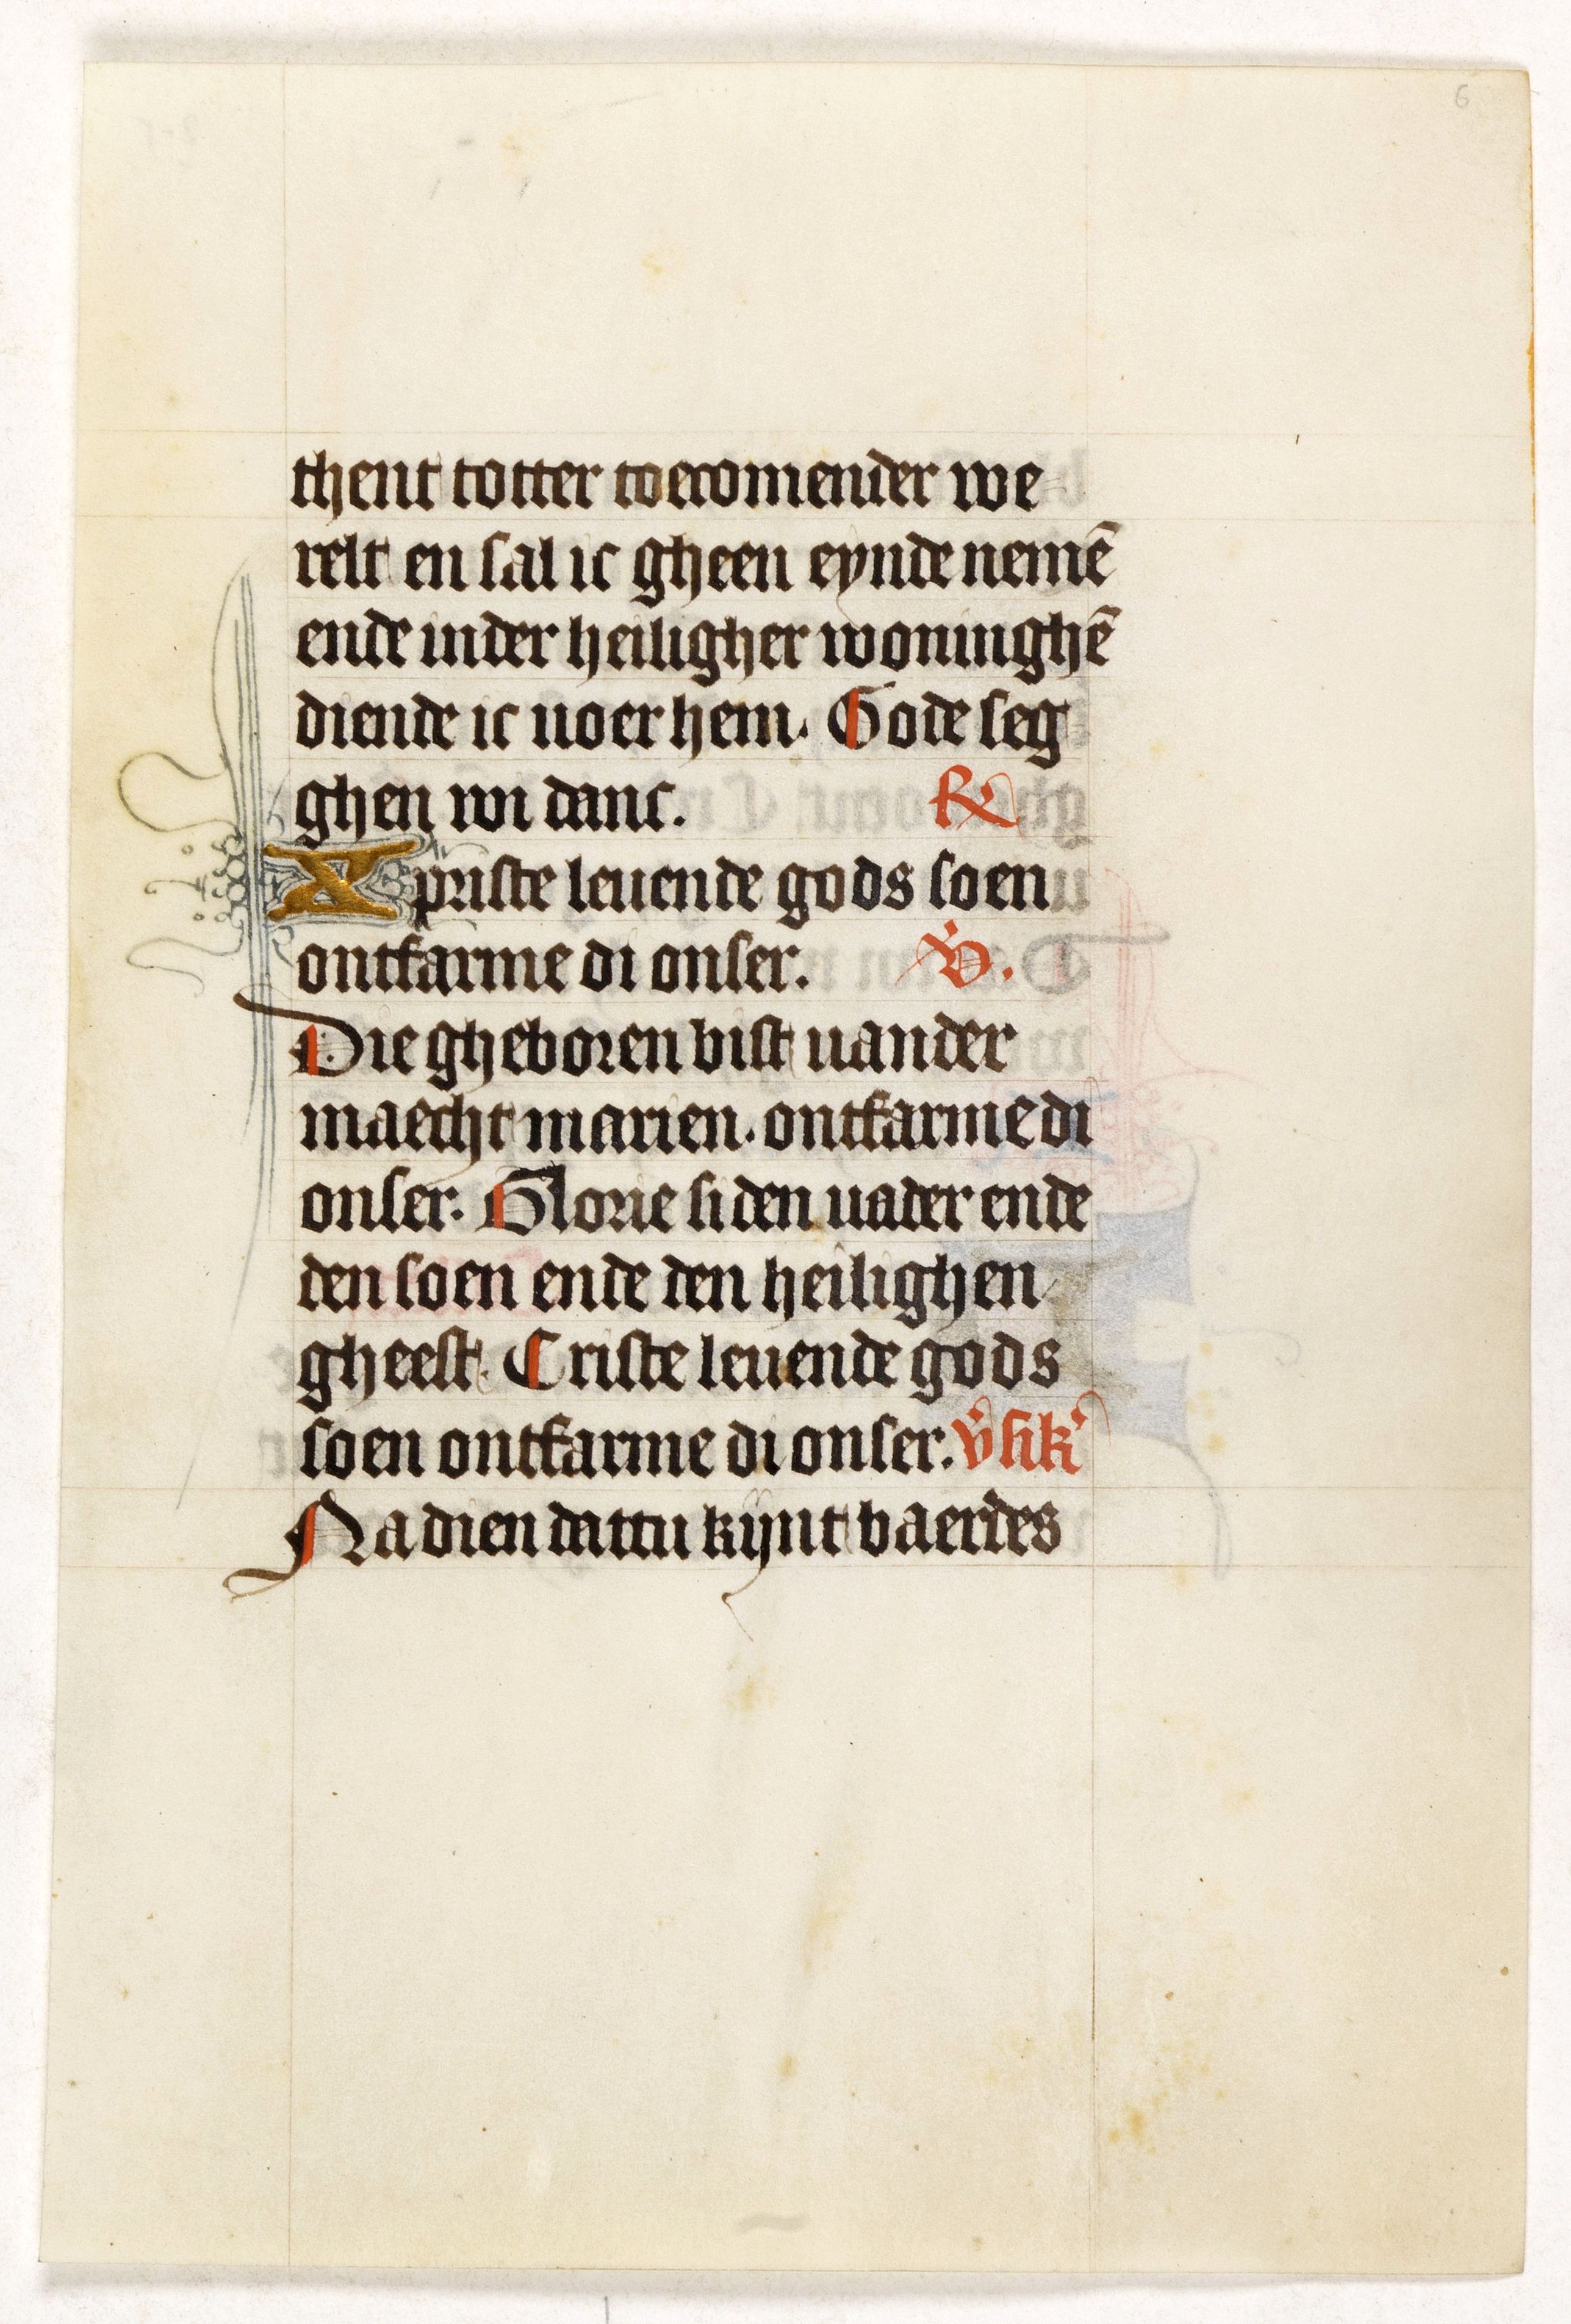 6
thent totter toecomender we
relt en sal ic gheen eynde nemē
ende inder heiligher woninghē
diende ic uoer hem. Gode seg
ghen wi danc. ℟
Xpriste leuende gods soen
ontfarme di onser. ℣.
Die gheboren bist uander
maecht marien. ontfarme di
onser. Glorie si den uader ende
den soen ende den heilighen
gheest. Criste leuende gods
soen ontfarme di onser. v̓sik̓
Na dien dattu kijnt baerdes